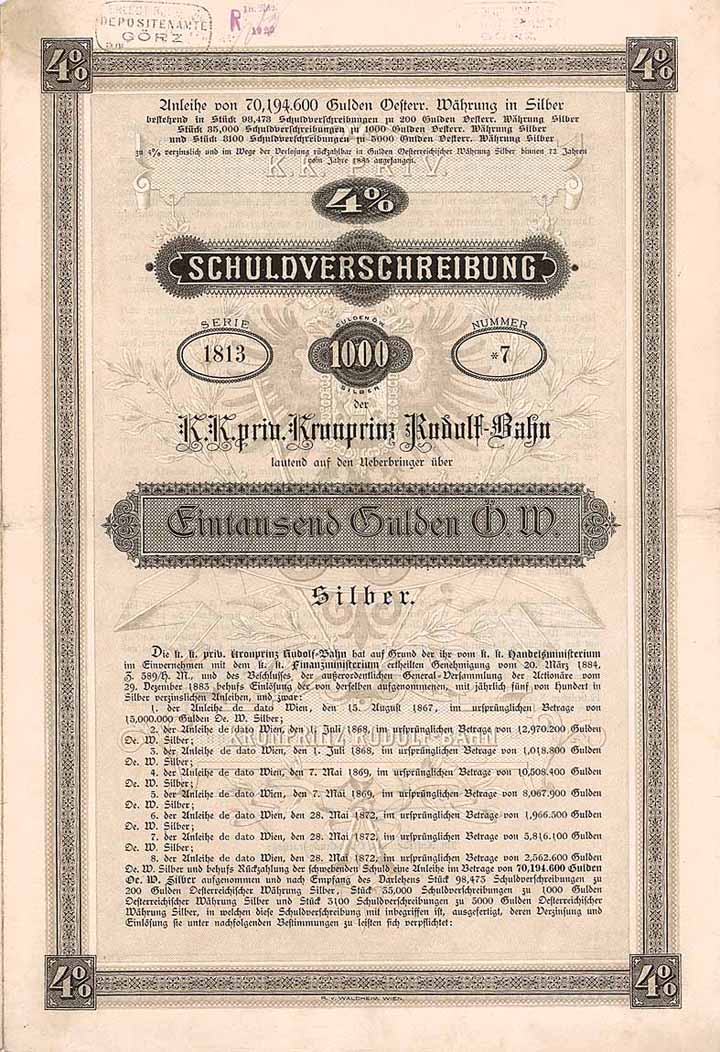 DEPOSITENAMTE
GÖRZ
R
4%
4%
Anleihe von 70,194.600 Gulden Oesterr. Währung in Silber
bestehend in Stück 98,473 Schuldverschreibungen zu 200 Gulden Oesterr. Währung Silber
Stück 35,000 Schuldverschreibungen zu 1000 Gulden Oesterr. Währung Silber
und Stück 3100 Schuldverschreibungen zu 5000 Gulden Oesterr. Währung Silber
zu 4% verzinslich und im Wege der Verlosung rückzahlbar in Gulden Oesterreichischer Währung Silber binnen 72 Jahren
vom Jahre 1885 angefangen.
K.K. PRIV.
4%
SCHULDVERSCHREIBUNG
SERIE
1813
GULDEN Ö.W.
1000
SILBER
NUMMER
*7
der
K.K. priv. Kronprinz Rudolf-Bahn
lautend auf den Ueberbringer über
Eintausend Gulden Ö. W.
Silber.
Die k. k. priv. Kronprinz Rudolf-Bahn hat auf Grund der ihr vom k. k. Handelsministerium
im Einvernehmen mit dem k. k. Finanzministerium ertheilten Genehmigung vom 20. März 1884,
Z. 589/H. M., und des Beschlusses der außerordentlichen General-Versammlung der Actionäre vom
29. Dezember 1883 behufs Einlösung der von derselben aufgenommenen, mit jährlich fünf von Hundert in
Silber verzinslichen Anleihen, und zwar:
1. der Anleihe de dato Wien, den 15. August 1867, im ursprünglichen Betrage von
15,000.000 Gulden Oe. W. Silber;
2. der Anleihe de dato Wien, den 1. Juli 1868, im ursprünglichen Betrage von 12,970.200 Gulden
Oe. W. Silber;
KRONPRINZ RUDOLF-BAHN
3. der Anleihe de dato Wien, den 1. Juli 1868, im ursprünglichen Betrage von 1,018.800 Gulden
Oe. W. Silber;
4. der Anleihe de dato Wien, den 7. Mai 1869, im ursprünglichen Betrage von 10,508.400 Gulden
Oe. W. Silber;
5. der Anleihe de dato Wien, den 7. Mai 1869, im ursprünglichen Betrage von 8,067.900 Gulden
Oe. W. Silber;
6. der Anleihe de dato Wien, den 28. Mai 1872, im ursprünglichen Betrage von 1,966.500 Gulden
Oe. W. Silber;
7. der Anleihe de dato Wien, den 28. Mai 1872, im ursprünglichen Betrage von 5,816.100 Gulden
Oe. W. Silber;
8. der Anleihe de dato Wien, den 28. Mai 1872, im ursprünglichen Betrage von 2,562.600 Gulden
Oe. W. Silber und behufs Rückzahlung der schwebenden Schuld eine Anleihe im Betrage von 70,194.600 Gulden
Oe. W. Silber aufgenommen und nach Empfang des Darlehens Stück 98,473 Schuldverschreibungen zu
200 Gulden Oesterreichischer Währung Silber, Stück 35,000 Schuldverschreibungen zu 1000 Gulden
Oesterreichischer Währung Silber und Stück 3100 Schuldverschreibungen zu 5000 Gulden Oesterreichischer
Währung Silber, in welchen diese Schuldverschreibung mit inbegriffen ist, ausgefertigt, deren Verzinsung und
Einlösung sie unter nachfolgenden Bestimmungen zu leisten sich verpflichtet:
4%
4%
R. v. WALDHEIM, WIEN.